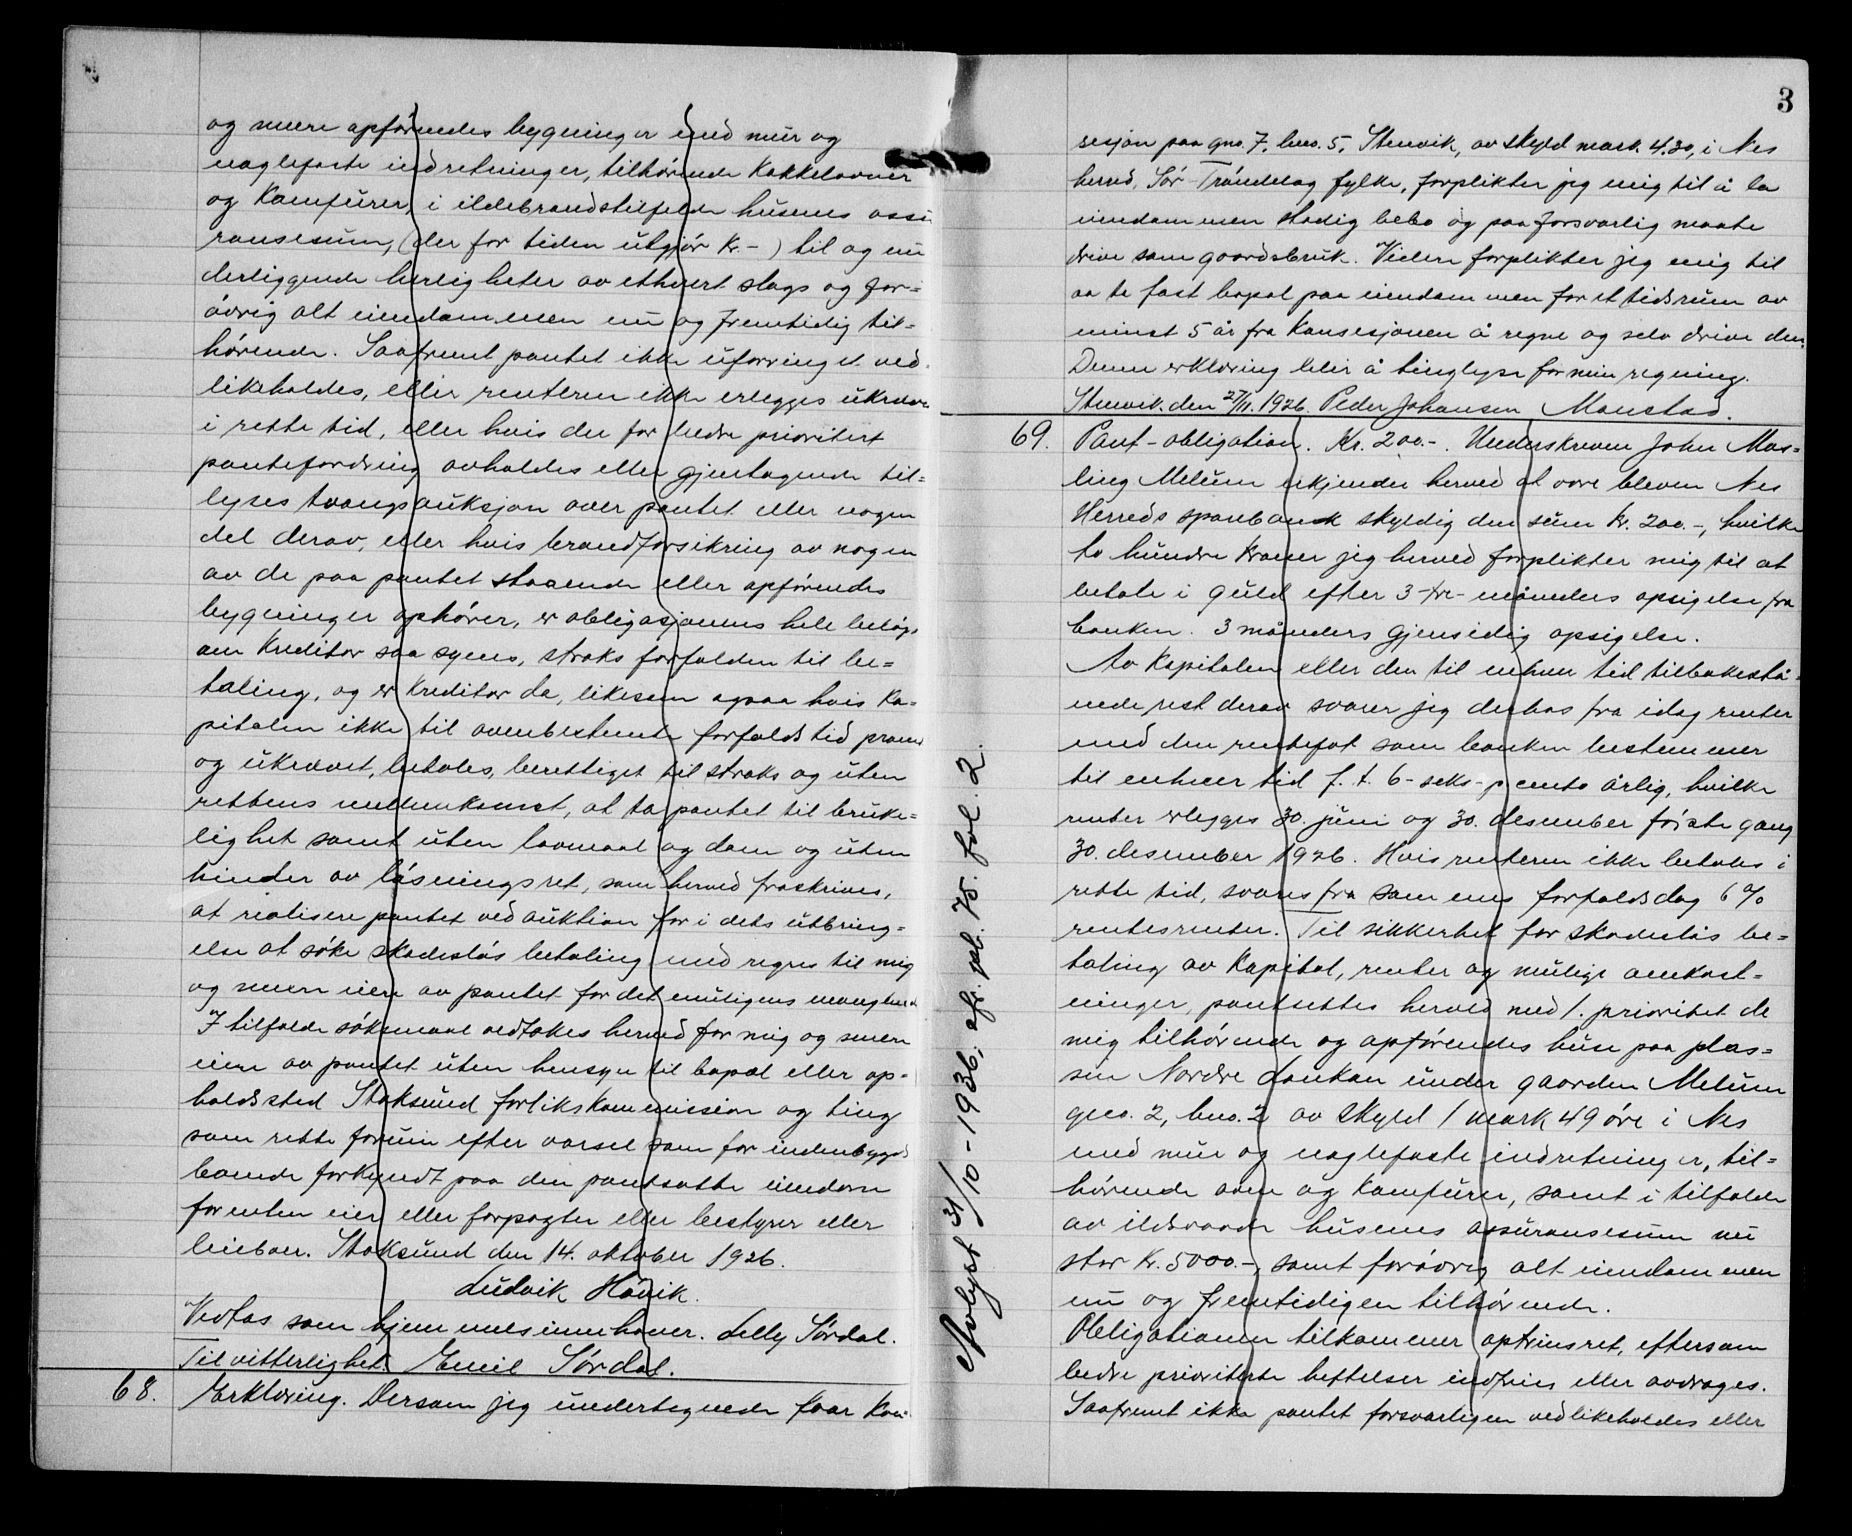 og mere opførendes bygninger med mur og
naglefaste indretninger, tilhørende kakkelovner
og Komfurer, i ildebrandstilfelde husenes assu-
ransesum, (der for tiden utgjør Kr - ) til og un
derliggende herligheter av ethvert slags og for-
øvrig alt eiendommen nu og fremtidig til-
hørende. Saafremt pantet ikke uforringet ved-
likeholdes, eller renterne ikke erlegges ukrævet
i rette tid, eller hvis der for bedre prioritert
pantefordring avholdes eller gjentagende til-
lyses tvangsauksjon over pantet eller nogen
del derav, eller hvis brandforsikring av nogen
av de paa pantet staaende eller opførendes
bygninger ophører, er obligasjonens hele beløp,
om Kreditor saa synes, straks forfalden til be-
taling, og er Kreditor da, likesom ogsaa hvis Ka-
pitalen ikke til ovenbestemte forfaldstid promt
og ukrævet, betales, berettiget til straks og uten
rettens mellemkomst, at ta pantet til bruke-
lighet samt uten lovmaal og dom og uten
hinder av løsningsret, som herved fraskrives,
at realisere pantet ved auktion for i dets utbring-
else at søke skadesløs betaling med regres til mig
og senere eiere av pantet for det muligens manglende
I tilfælde søksmaal vedtakes herved for mig og senere
eiere av pantet uten hensyn til bopæl eller op-
holdssted Stoksund forlikskommission og ting
som rette forum efter varsel som for indenbygds
boende forkyndt paa den pantsatte eiendom
for enten eier eller forpagter eller bestyrer eller
leieboer. Stoksund den 14. oktober 1926.
Ludvik Høvik.
Vedtas som hjemmelsinnehaver. Lelly Sørdal.
Til vitterlighet: Emil Sørdal.
68. Erklæring. Dersom jeg undertegnede faar Kon-
3
sesjon paa gno. 7, bno. 5, Stenvik, av skyld mark 4.20, i Nes
herred, Sør-Trøndelag fylke, forplikter jeg mig til å la
eiendommen stadig bebo og paa forsvarlig maate
drive som gaardsbruk. Videre forplikter jeg mig til
aa ta fast bopæl paa eiendommen for et tidsrum av
minst 5 år fra Konsesjonen å regne og selv drive den.
Denne erklæring blir å tinglyse for min regning.
Stenvik den 27/11. 1926. Peder Johansen Monstad.
69. Pant-obligation. Kr. 200.-. Underskreven John Mas-
ling Melum erkjender herved at være bleven Nes
Herreds sparebank skyldig den sum kr. 200.-, hvilke
to hundre kroner jeg herved forplikter mig til at
betale i guld efter 3-tre-måneders opsigelse fra
banken. 3 månders gjensidig opsigelse.
Av Kapitalen eller den til enhver tid tilbakestå-
ende rest derav svarer jeg derhos fra idag renter
med den rentefot som banken bestemmer
til enhver tid f. t. 6-seks-procento årlig, hvilke
renter erlegges 30. juni og 30. desember første gang
30. desember 1926. Hvis renterne ikke betales i
rette tid, svares fra sammes forfaldsdag 6%
rentesrenter. Til sikkerhet for skadesløs be-
taling av Kapital, renter og mulige omkost-
ninger, pantsettes herved med 1. prioritet de
mig tilhørende og opførendes huse paa plas-
sen Nordre under gaarden Melum
gno. 2, bno. 2 av skyld 1 mark 49 øre i Nes
med mur og naglefaste indretninger, til-
hørende ovne og Komfurer, samt i tilfælde
av ildsvaade husenes assuransesum nu
stor Kr. 5000.-, samt forøvrig alt eiendommen
nu og fremtidigen tilhørende.
Obligationen tilkommer optrinsret, eftersom
bedre prioriterte heftelser indfries eller avdrages.
Saafremt ikke pantet forsvarligen vedlikeholdes eller
Avlyst 31/10-1936, afr. pb. 75. fol. 2.